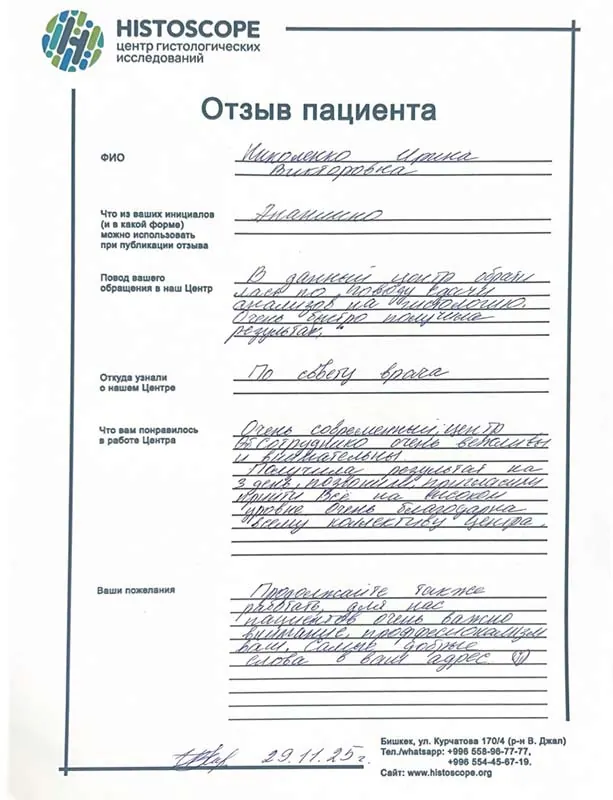 HISTOSCOPE
центр гистологических
исследований
Отзыв пациента
ФИО
Николенко Ирина
Викторовна
Что из ваших инициалов
(и в какой форме)
можно использовать
при публикации отзыва
Анонимно
Повод вашего
обращения в наш Центр
В данный центр обрати
лась по поводу сдачи
анализов на гистологию.
Очень быстро получила
результат.
Откуда узнали
о нашем Центре
По совету врача
Что вам понравилось
в работе Центра
Очень современный центр
Сотрудники очень вежливы
и внимательны
Получила результат на
3 день, позвонили, пригласили
прийти Всё на высоком
уровне Очень благодарна
всему коллективу Центра.
Ваши пожелания
Продолжайте также
работать, для нас
пациентов очень важно
внимание, профессионализм
ваш. Самые добрые
слова в ваш адрес
29.11.25г.
Бишкек, ул. Курчатова 170/4 (р-н В. Джал)
Тел./whatsapp: +996 558-96-77-77,
+996 554-45-67-19.
Сайт: www.histoscope.org